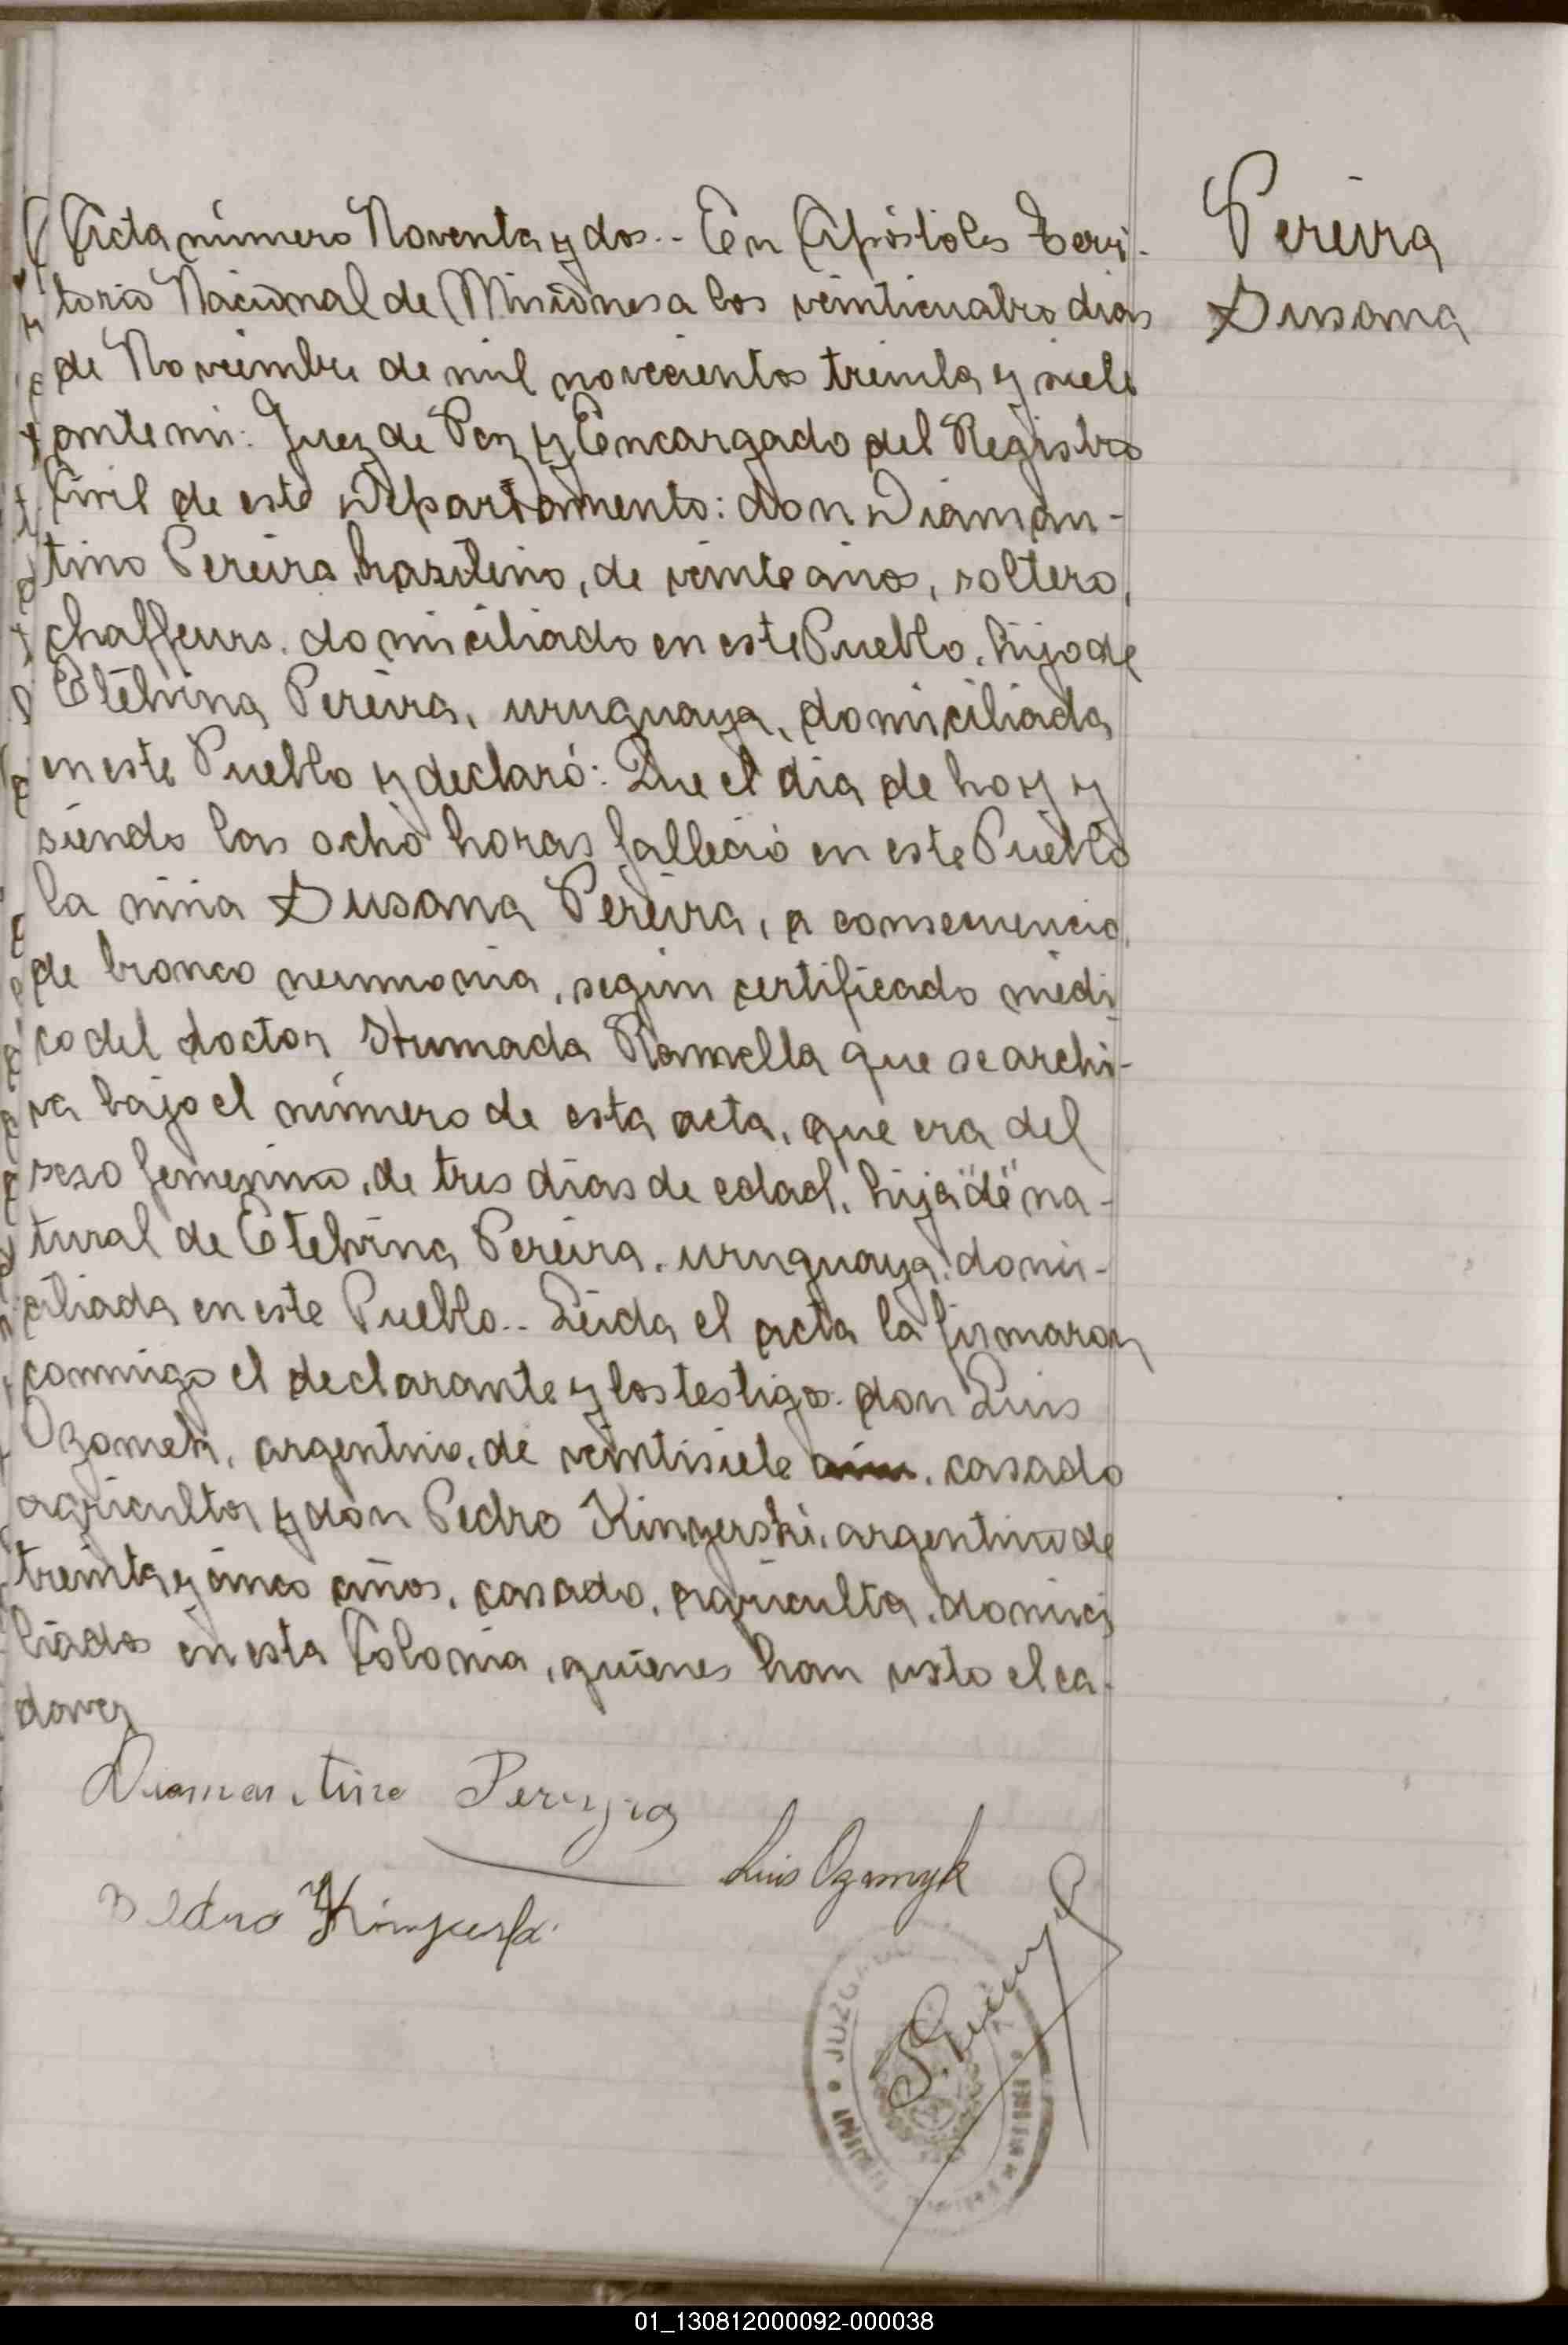 Pereira
Susana
Acta número Noventa y dos.- En Apóstoles Terri-
torio Nacional de Misiones a los veinticuatro dias
de Noviembre de mil novecientos treinta y siete
ante mi: Juez de Paz y Encargado del Registro
Civil de este Departamento: don Diaman-
tino Pereira, brazilino, de veinte años, soltero,
chaffeurs. domiciliado en este Pueblo. hijo de
Etelvina Pereira, uruguaya, domiciliada
en este Pueblo y declaró: Que el dia de hoy y
siendo las ocho horas falleció en este Pueblo
la niña Susana Pereira, a consecuencia
de bronco neumonia, según certificado médi
co del doctor Ahumada Ramella que se archi-
va bajo el número de esta acta, que era del
sexo femenino, de tres dias de edad, hija "de" na-
tural de Etelvina Pereira. uruguaya. domi-
ciliada en este Pueblo.- Leida el acta la firmaron
conmigo el declarante y los testigos. don Luis
Ozomek, argentino, de veintisiete casado
agricultor y don Pedro Kinyerski, argentino de
treinta y cinco años, casado, agriculta, domici
liados en esta Colonia, quienes han visto el ca-
daver
Diamantino Pereyra
Luis Ozomyk
Pedro
JUZGADO
01_130812000092-000038